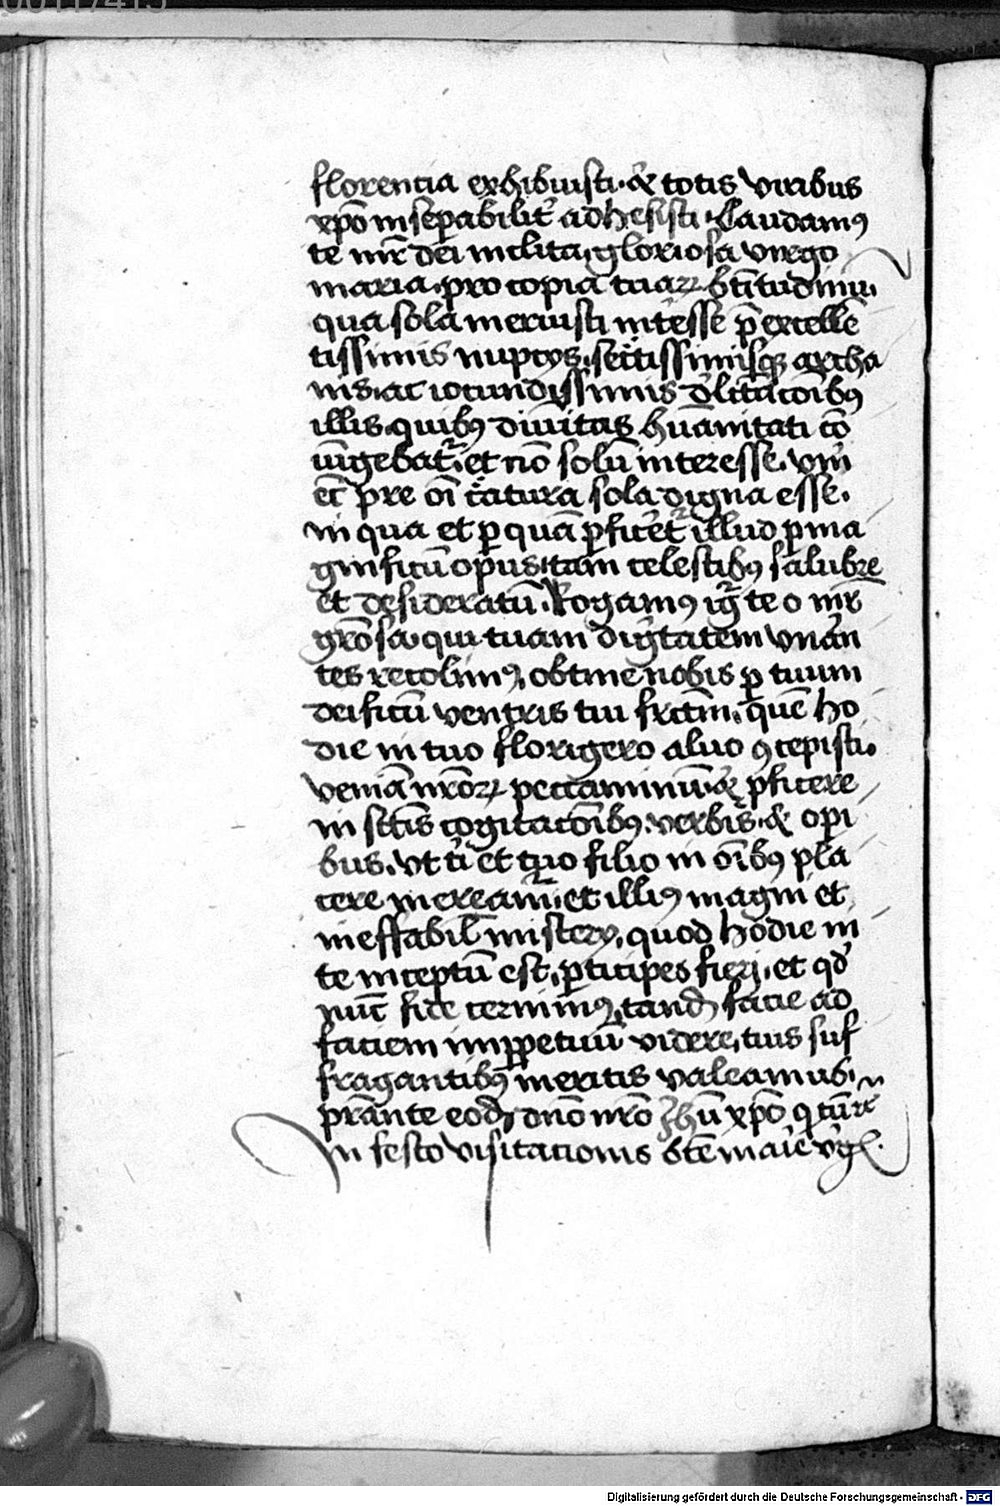 florencia exhibuisti · & totis viribus
xp̄o insep̲abilit̾ adhesisti · Laudamꝰ
te mr̄ dei inclita, gloriosa virgo
maria, pro copia tuaꝝ bt̄itudinū.
qua sola meruisti int̾esse p̄excellē
tissimis nuptijs, sec̾tissimisq̃ archa
nis, ac iocundissimis d̾litac̄oībꝰ
illis, quibꝰ diuītas hūanitati cō
iūgebat̾, et nō solū interesse, vm̄
ec̄ pre oī c̾atura sola digna esse,
in qua et ꝑ quā ꝑficet̾ illud ꝑma
gnificū opus, tam celestibꝰ salubre
et desideratū. Rogamꝰ iḡ te o mr̄
gr̄osa, qui tuam dig̾tatem vn̄an
tes recolimꝰ, obtine nobis ꝑ tuum
deificū ventris tui fr̄ctm̄, quē ho
die in tuo florigero aluo ꝯcepisti.
veniā nr̄oꝝ peccaminū, & ꝓficere
in sc̄tis cogitac̄oībꝰ, verbis, & oꝑi
bus, vt t̾ et tuo filio in oībꝰ pla
cere meream̾, et illiꝰ magni et
ineffabil̄ misterij, quod hodie in
te inceptū est, ꝑticipes fieri, et qd̾
nūc fide cernimꝰ, tandē facie ad
faciem imꝑpetuū videre, tuis suf
fragantibꝰ meritis valeamus.
pr̄ante eodē dn̄o nr̄o Jhū xp̄o q̇ cū rc̄
In festo visitationis btē maīe vīrg̃.
Digitalisierung gefördert durch die Deutsche Forschungsgemeinschaft - DFG